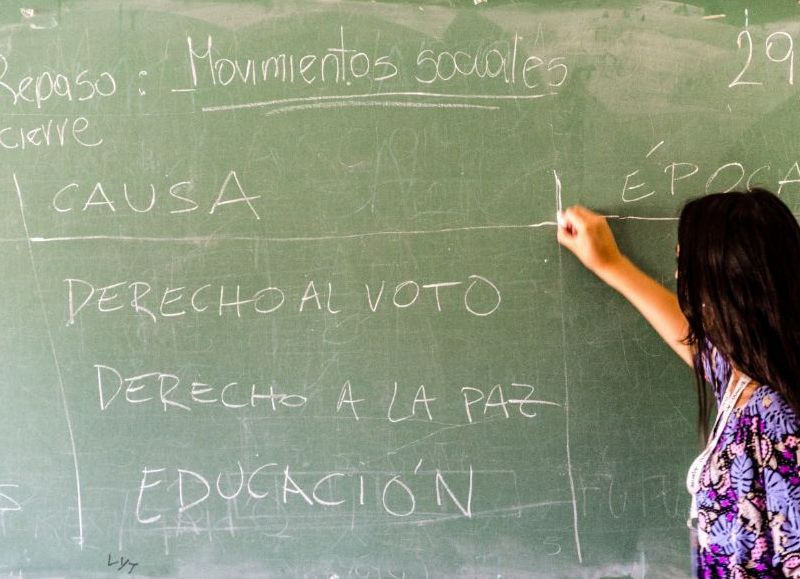 Repaso: Movimientos sociales 29
cierre
CAUSA ÉPOCA
DERECHO AL VOTO
DERECHO A LA PAZ
EDUCACIÓN